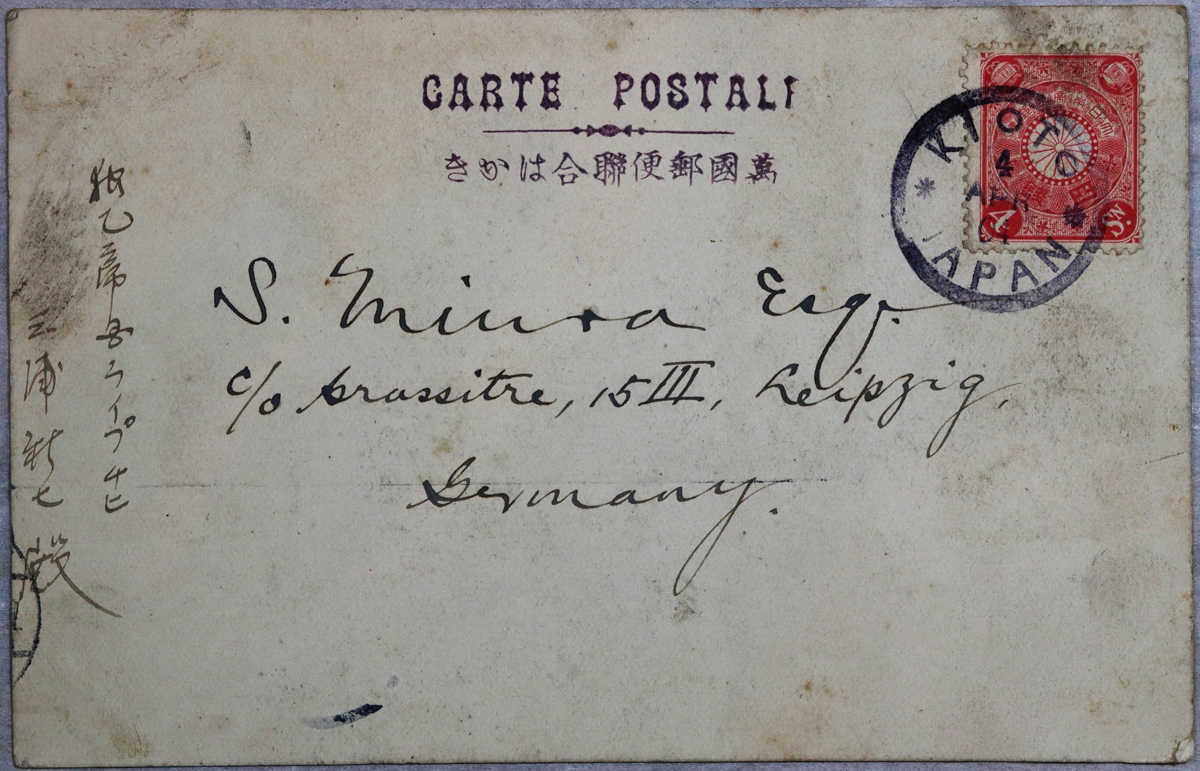 CARTE POSTALE
萬國郵便聯合はかき
KIOTO
4
APR
01
JAPAN
4
Sn.
S. Miura Esq.
c/o Grassistre, 15 III, Leipzig,
Germany.
独乙帝國ライプチヒ
三浦新七殿